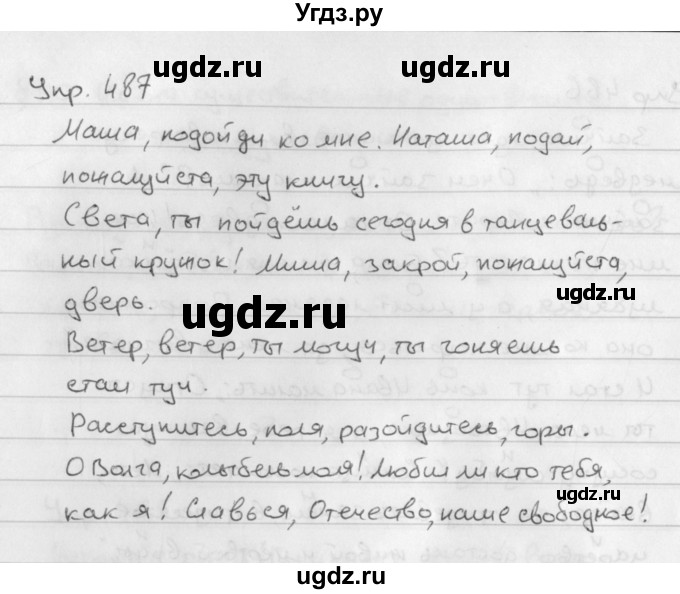 Угдз.ру
ugdz.ru
Упр. 487
Маша, подойди ко мне. Наташа, подай,
пожалуйста, эту книгу.
Света, ты пойдёшь сегодня в танцеваль-
ный кружок! Миша, закрой, пожалуйста,
ugdz.ru
дверь.
ugdz.ru
Ветер, ветер, ты могуч, ты гоняешь
стаи туч
Расступитесь, поля, разойдитесь, горы.
О Волга, колыбель моя! Любил ли кто тебя,
ugdz.ru
как я! Славься, Отечество, наше свободное!
ugdz.ru